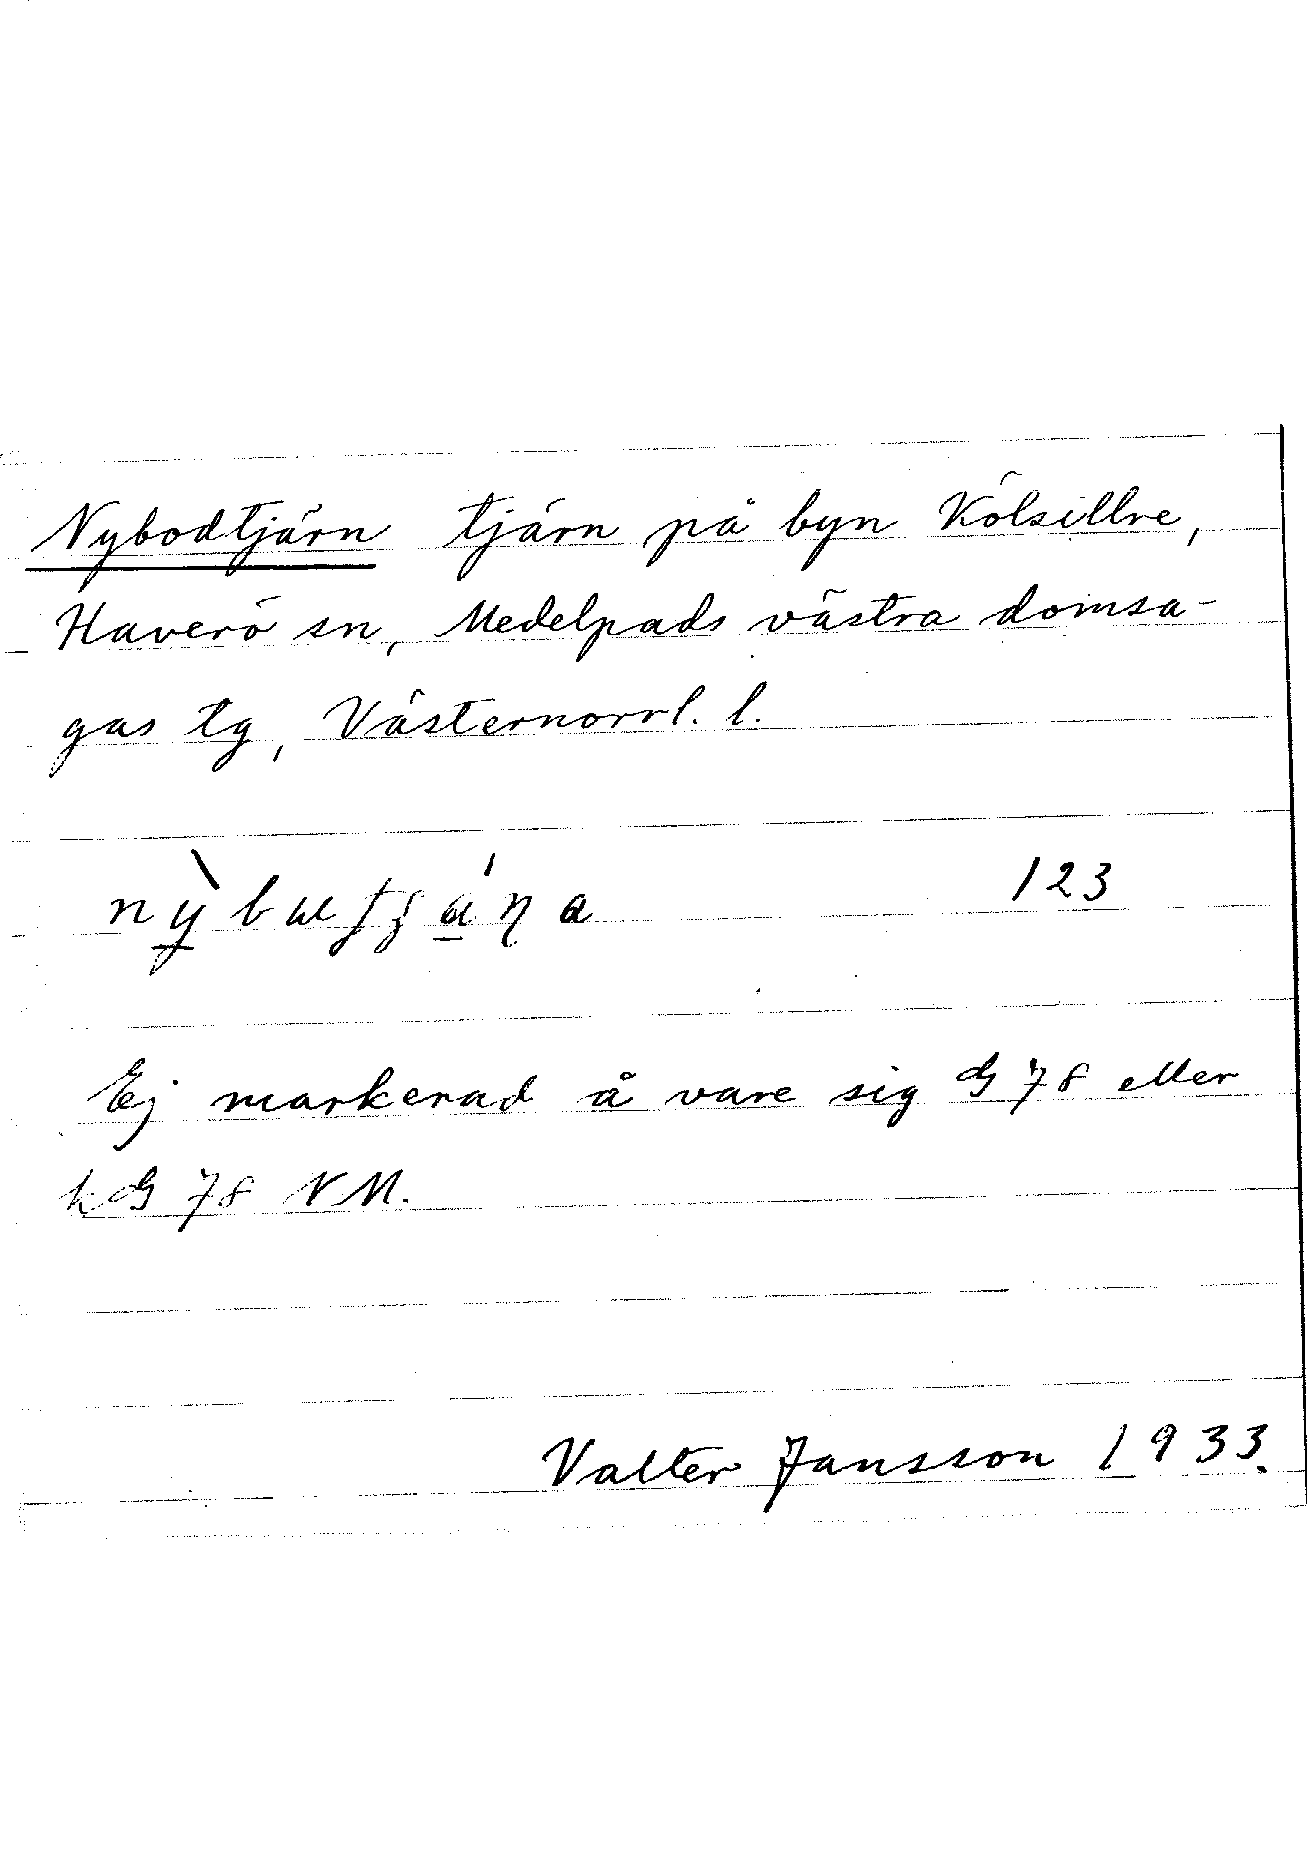 Nybodtjärn tjärn på byn Kölsillre,
Haverö sn, Medelpads västra domsa-
gas tg, Västernorrl. l.
123
Ej markerad å vare sig G 78 eller
kG 78 NM.
Valter Jansson 1933.